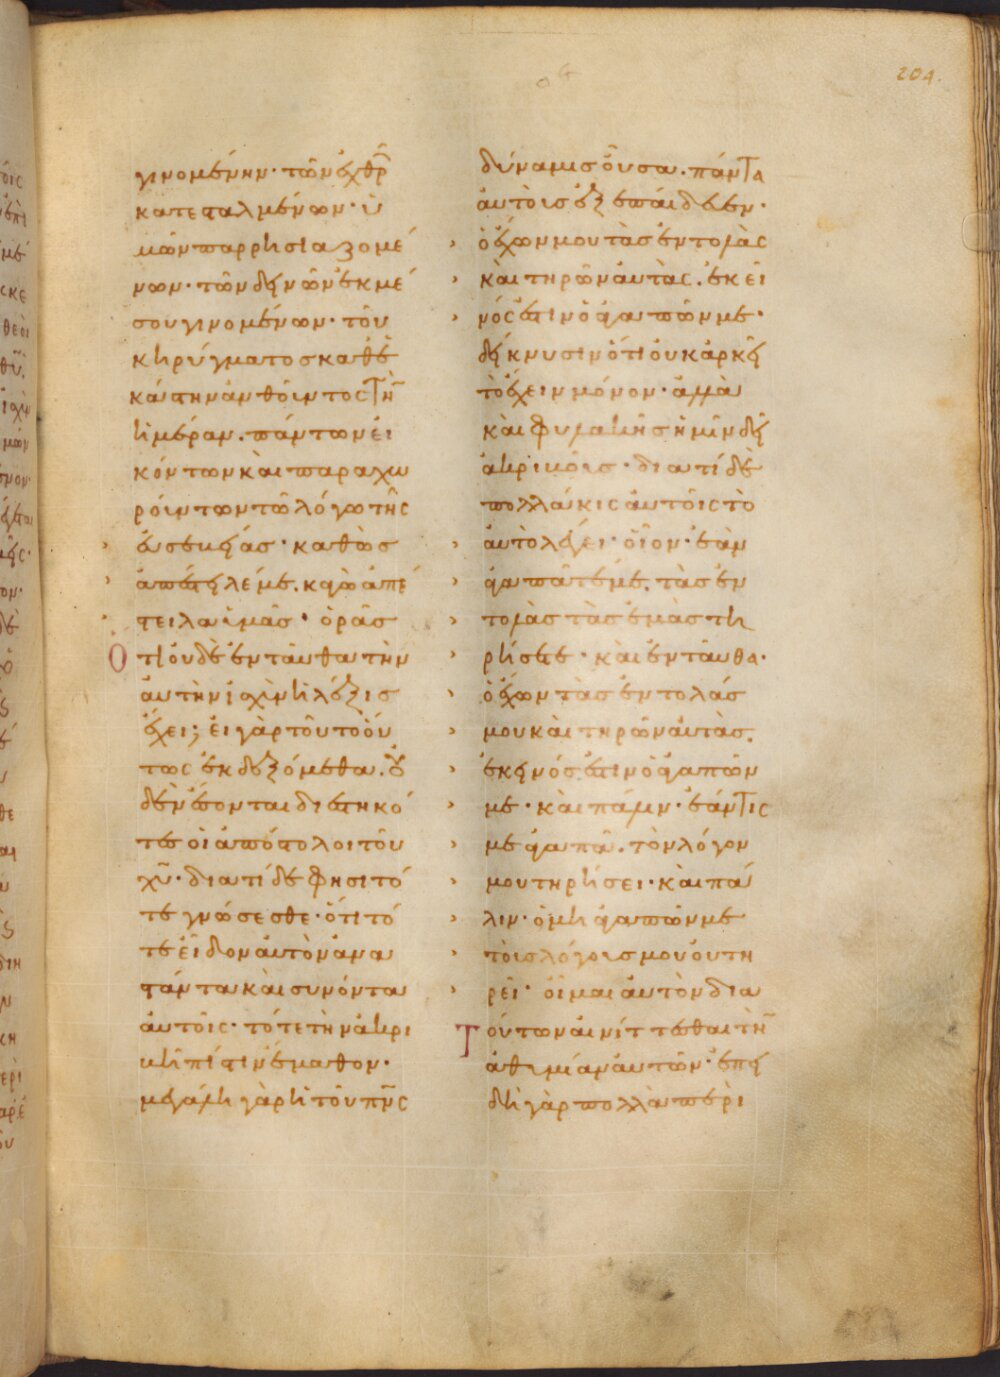 204
γινομένην· τῶν ἐχθρῶ
κατεσταλμένων· ὑ
μῶν παρρησιαζομέ
νων· τῶν δεινῶν ἐκ μέ
σου γινομένων· τοῦ
κηρύγματος καθ' ἑ
κάστην ἀνθοῦντος τὴν
ἡμέραν. πάντων εἰ
κόντων καὶ παραχω
ρούντων τῶ λόγω τῆς
εὐσεβείας· καθὼς
ἀπέστειλέ με. κἀγὼ ἀπέ
στειλα ὑμᾶς· ὁρᾶς
ὅτι οὐδὲ ἐνταῦθα τὴν
αὐτὴν ἰσχὺν ἡ λέξις
ἔχει; εἰ γὰρ τοῦτο οὕ
τως ἐκδεξόμεθα. οὐ
δὲν ἔσονται διεστηκό
τες οἱ ἀπόστολοι τοῦ
χῦ· διατί δέ φησι τό
τε γνώσεσθε· ὅτι τό
τε εἶδον αὐτὸν ἀνα
στάντα καὶ συνόντα
αὐτοῖς· τότε τὴν ἀκρι
βῆ πίστιν ἔμαθον·
μεγάλη γὰρ ἡ τοῦ πνς
δύναμις οὖσα. πάντα
αὐτοὺς ἐξεπαίδευεν·
ὁ ἔχων μου τὰς ἐντολὰς
καὶ τηρῶν αὐτὰς. ἐκεῖ
νός ἐστιν ὁ ἀγαπῶν με·
δείκνυσιν ὅτι οὐκ ἀρκεῖ
τὸ ἔχειν μόνον· ἀλλὰ
καὶ φυλακῆς ἡμῖν δεῖ
ἀκριβοῦς· διατί δὲ
πολλάκις αὐτοῖς τὸ
αὐτὸ λέγει· οἷον· ἐὰν
ἀγαπᾶτέ με. τὰς ἐν
τολὰς τὰς ἐμὰς τη
ρήσετε· καὶ ἐνταῦθα·
ὁ ἔχων τὰς ἐντολάς
μου καὶ τηρῶν αὐτὰς.
ἐκεῖνός ἐστιν ὁ ἀγαπῶν
με· καὶ πάλιν· ἐάν τις
με ἀγαπᾶ. τὸν λόγον
μου τηρήσει· καὶ πά
λιν· ὁ μὴ ἀγαπῶν με
τοὺς λόγους μου οὐ τη
ρεῖ· οἶμαι αὐτὸν διὰ
τούτων αἰνίττεσθαι τὴν
ἀθυμίαν αὐτῶν· ἐπει
δὴ γὰρ πολλὰ περὶ